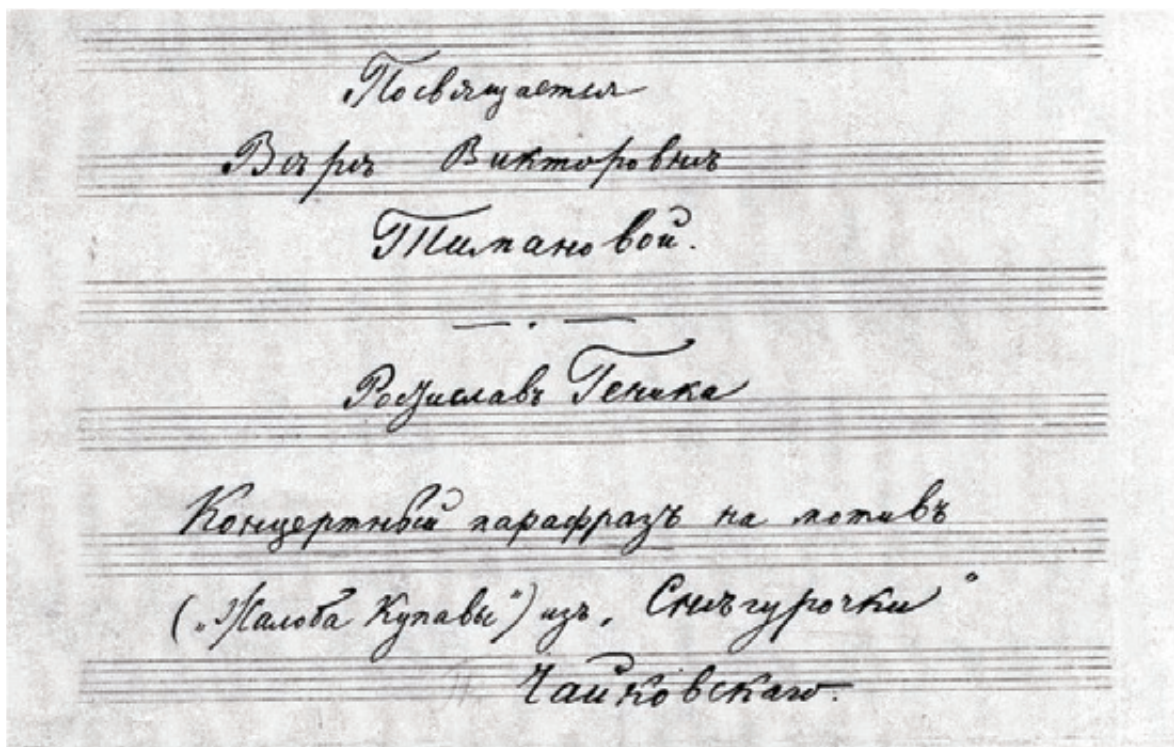 Посвящается
Вѣрѣ Викторовнѣ
Тимановой.
Ростиславъ Геника
Концертный парафразъ на мотивъ
(„Жалоба Купавы“) изъ „Снѣгурочки“
Чайковскаго.